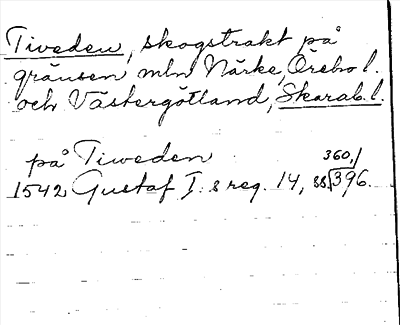 Tiveden, skogstrakt på
gränsen mln Närke, Örebro l.
och Västergötland, Skarab. l.
på Tiweden
360,
1542 Gustaf I:s reg. 14, ss 396.